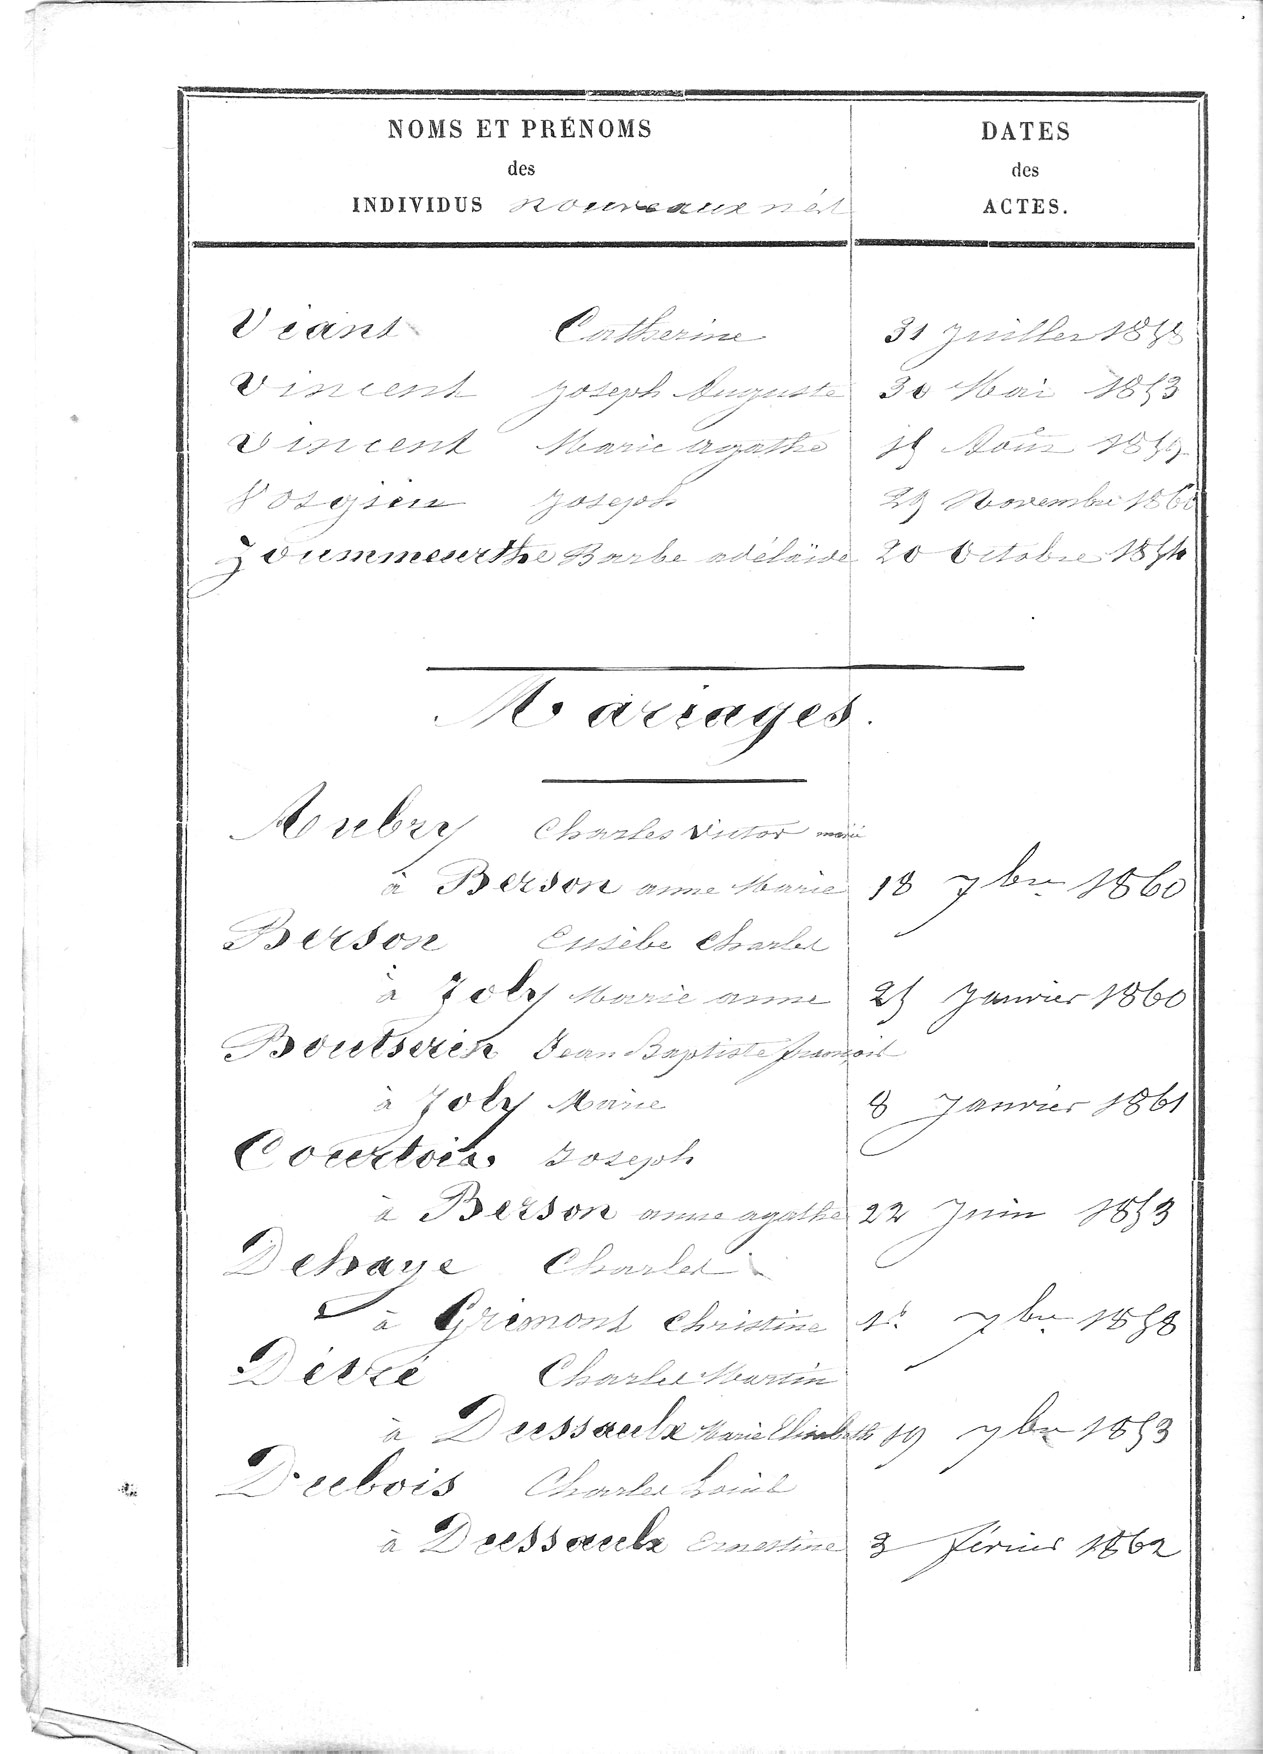 NOMS ET PRÉNOMS
des
INDIVIDUS nouveaux nés
DATES
des
ACTES.
Viant Catherine 31 Juillet 1858
Vincent Joseph Auguste 30 Mai 1853
Vincent Marie agathe 15 Août 1859
Vosgien Joseph 29 Novembre 1860
Zoummeurthe Barbe adélaïde 20 Octobre 1854
Mariages.
Aubry Charles Victor marié
à Berson anne Marie 18 7bre 1860
Berson Eusèbe Charles
à Joly Marie anne 25 Janvier 1860
Boutserin Jean Baptiste françois
à Joly Marie 8 Janvier 1861
Courtois Joseph
à Berson anne agathe 22 Juin 1853
Dehaye Charles
à Grimont Christine 1r 7bre 1858
Dévré Charles Martin
à Dussaulx Marie Elisabeth 19 7bre 1853
Dubois Charles Louis
à Dussaulx Ernestine 3 février 1862